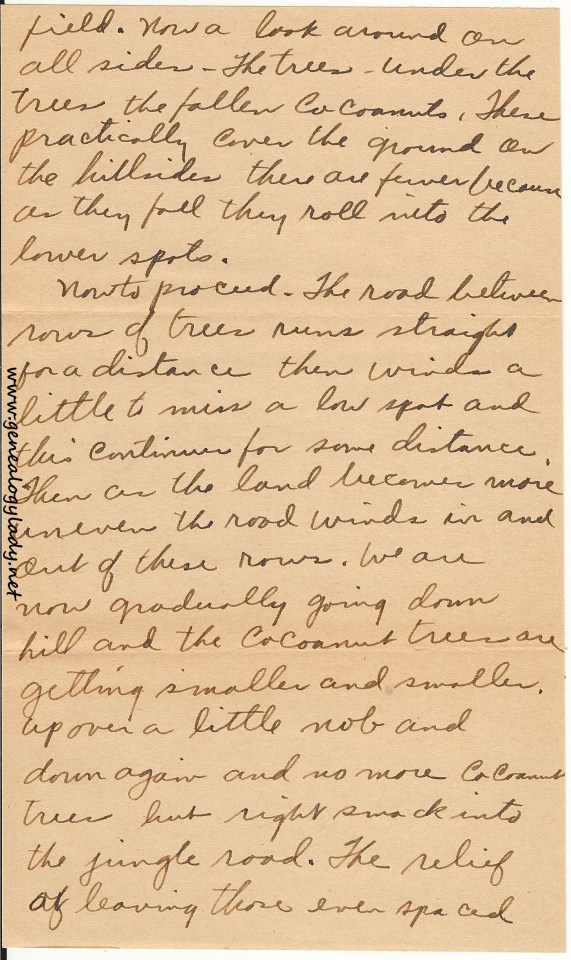 field. Now a look around on
all sides - The trees - under the
trees the fallen Cocoanuts. These
practically cover the ground on
the hillsides there are fewer because
as they fall they roll into the
lower spots.
Now to proceed - The road between
rows of trees runs straight
for a distance then winds a
little to miss a low spot and
this continues for some distance.
Then as the land becomes more
uneven the road winds in and
out of these rows. We are
now gradually going down
hill and the Cocoanut trees are
getting smaller and smaller.
up over a little nob and
down again and no more Cocoanut
trees but right smack into
the jungle road. The relief
of leaving those even spaced
www.genealogylady.net